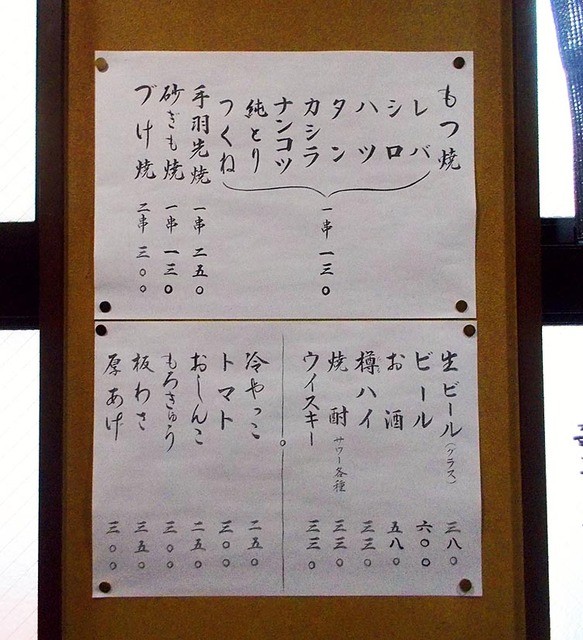 もつ焼
レバ
シロ
ハツ
タン
カシラ
ナンコツ
純とり
つくね
一串 一三〇
手羽先焼 一串 二五〇
砂ぎも焼 一串 一三〇
づけ焼 二串 三〇〇
生ビール(グラス) 三八〇
ビール 六〇〇
お酒 五八〇
樽ハイ 三三〇
焼酎 サワー各種 三三〇
ウイスキー 三三〇
冷やっこ 二五〇
トマト 三〇〇
おしんこ 二五〇
もろきゅう 三〇〇
板わさ 三五〇
厚あげ 三〇〇